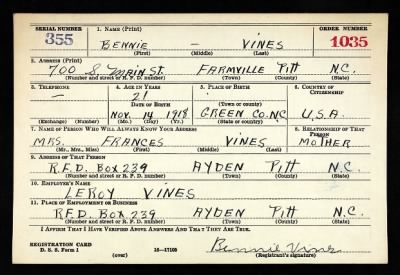 SERIAL NUMBER 1. NAME (Print) ORDER NUMBER
355 BENNIE – VINES 1035
(First) (Middle) (Last)
2. ADDRESS (Print)
700 S. MAIN ST. FARMVILLE PITT N.C.
(Number and street or R. F. D. number) (Town) (County) (State)
3. TELEPHONE 4. AGE IN YEARS 5. PLACE OF BIRTH 6. COUNTRY OF CITIZENSHIP
– 21
DATE OF BIRTH (Town or county)
NOV. 14 1918 GREEN CO. NC U.S.A.
(Exchange) (Number) (Mo.) (Day) (Yr.) (State or country)
7. NAME OF PERSON WHO WILL ALWAYS KNOW YOUR ADDRESS 8. RELATIONSHIP OF THAT PERSON
MRS. FRANCES VINES MOTHER
(Mr., Mrs., Miss) (First) (Middle) (Last)
9. ADDRESS OF THAT PERSON
R.F.D. BOX 239 AYDEN PITT N.C.
(Number and street or R. F. D. number) (Town) (County) (State)
10. EMPLOYER'S NAME
LEROY VINES
11. PLACE OF EMPLOYMENT OR BUSINESS
R.F.D. BOX 239 AYDEN PITT N.C.
(Number and street or R. F. D. number) (Town) (County) (State)
I AFFIRM THAT I HAVE VERIFIED ABOVE ANSWERS AND THAT THEY ARE TRUE.
REGISTRATION CARD
D. S. S. Form 1 16—17105 Bennie Vines
(over) (Registrant's signature)